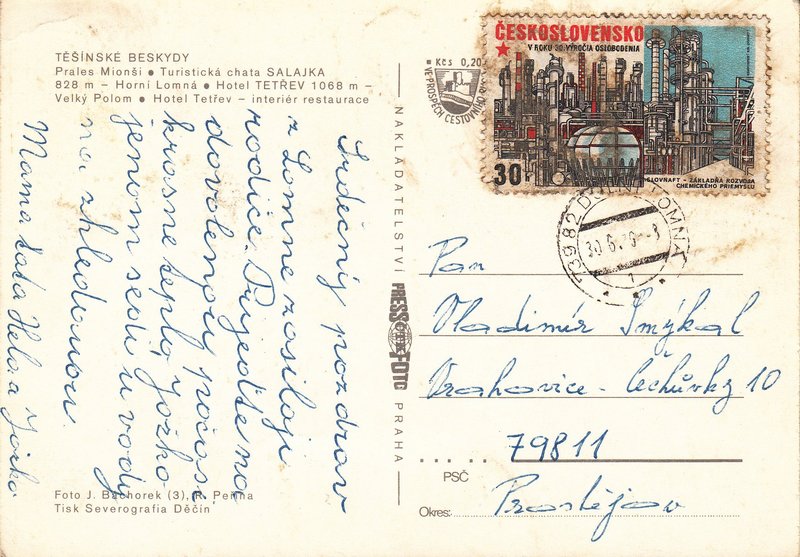 TĚŠÍNSKÉ BESKYDY
Prales Mionší ● Turistická chata SALAJKA
828 m – Horní Lomná ● Hotel TETŘEV 1068 m –
Velký Polom ● Hotel Tetřev – interiér restaurace
Srdečný pozdrav
z Lomne zasilaji
rodiče. Přijeďte na
dovolenou počasi
krasne teplo Jožko
jenom sedi u vody
na zhledanou.
Mama tata Hela a Jožko
Foto J. Bachorek (3), R. Penna
Tisk Severografia Děčín
NAKLADATELSTVÍ PRESSFOTO PRAHA
Kčs 0,20
VE PROSPĚCH CESTOVNÍHO
ČESKOSLOVENSKO
V ROKU 30. VÝROČIA OSLOBODENIA
30
SLOVNAFT - ZÁKLADŇA ROZVOJA
CHEMICKÉHO PRIEMYSLU
739 82 DOLNÍ LOMNÁ
30.6.76-8
1
Pan
Vladimír Smýkal
Vrahovice - Čechůvky 10
79811
PSČ
Okres: Prostějov